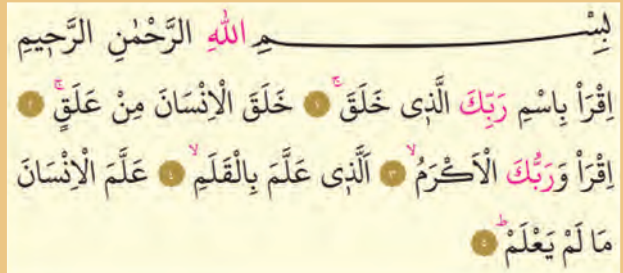 بِسْمِ اللّٰهِ الرَّحْمٰنِ الرَّح۪يمِ
اِقْرَأْ بِاسْمِ رَبِّكَ الَّذ۪ى خَلَقَۚ ﴿١﴾ خَلَقَ الْاِنْسَانَ مِنْ عَلَقٍۚ ﴿٢﴾
اِقْرَأْ وَرَبُّكَ الْاَكْرَمُۙ ﴿٣﴾ اَلَّذ۪ى عَلَّمَ بِالْقَلَمِۙ ﴿٤﴾ عَلَّمَ الْاِنْسَانَ
مَا لَمْ يَعْلَمْۜ ﴿٥﴾